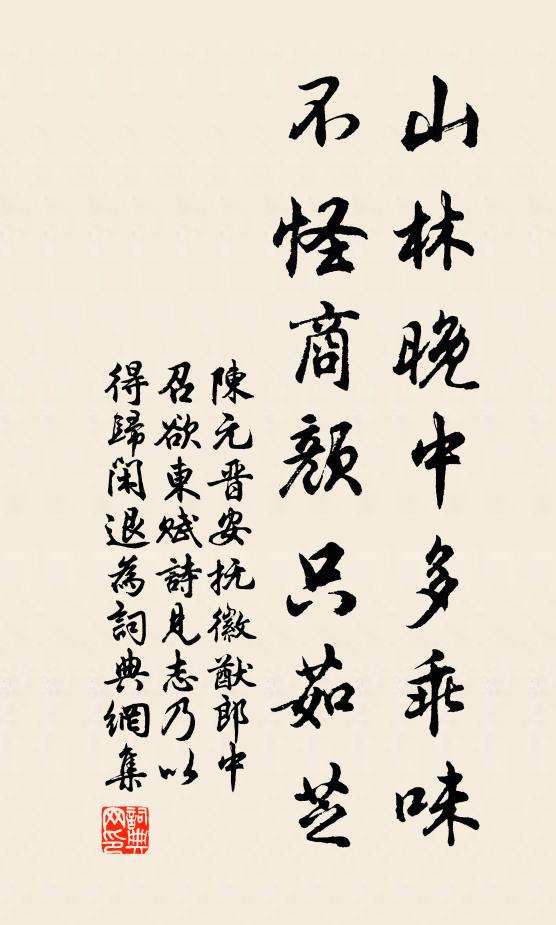 山林晚中多乖味
不怪商顏只茹芝
陳元晋安抚徽猷郎中
召欲東赋詩見志乃以
得歸閑退為詞典網集
詞典網印